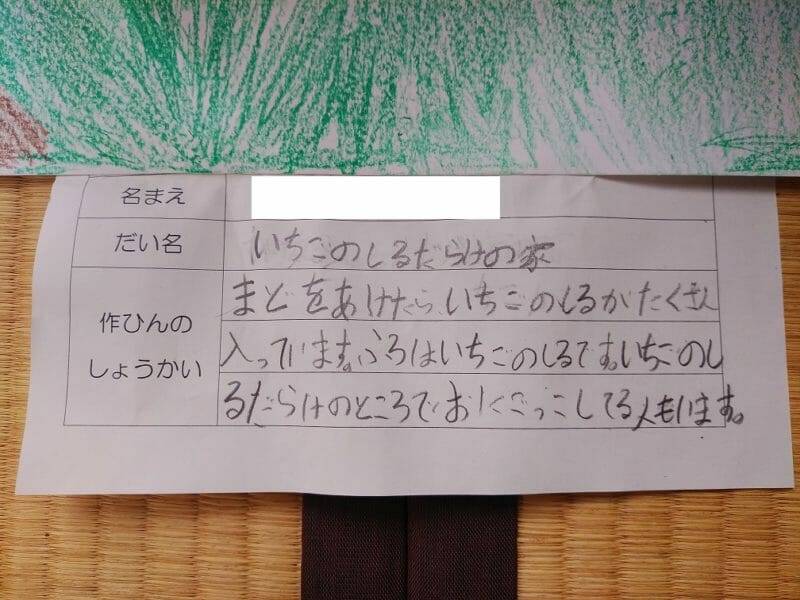 名まえ
だい名
いちごのしるだらけの家
作ひんの
しょうかい
まどをあけたら、いちごのしるがたくさん
入っています。ふろはいちごのしるです。いちごのし
るだらけのところでおにごっこしてる人もいます。